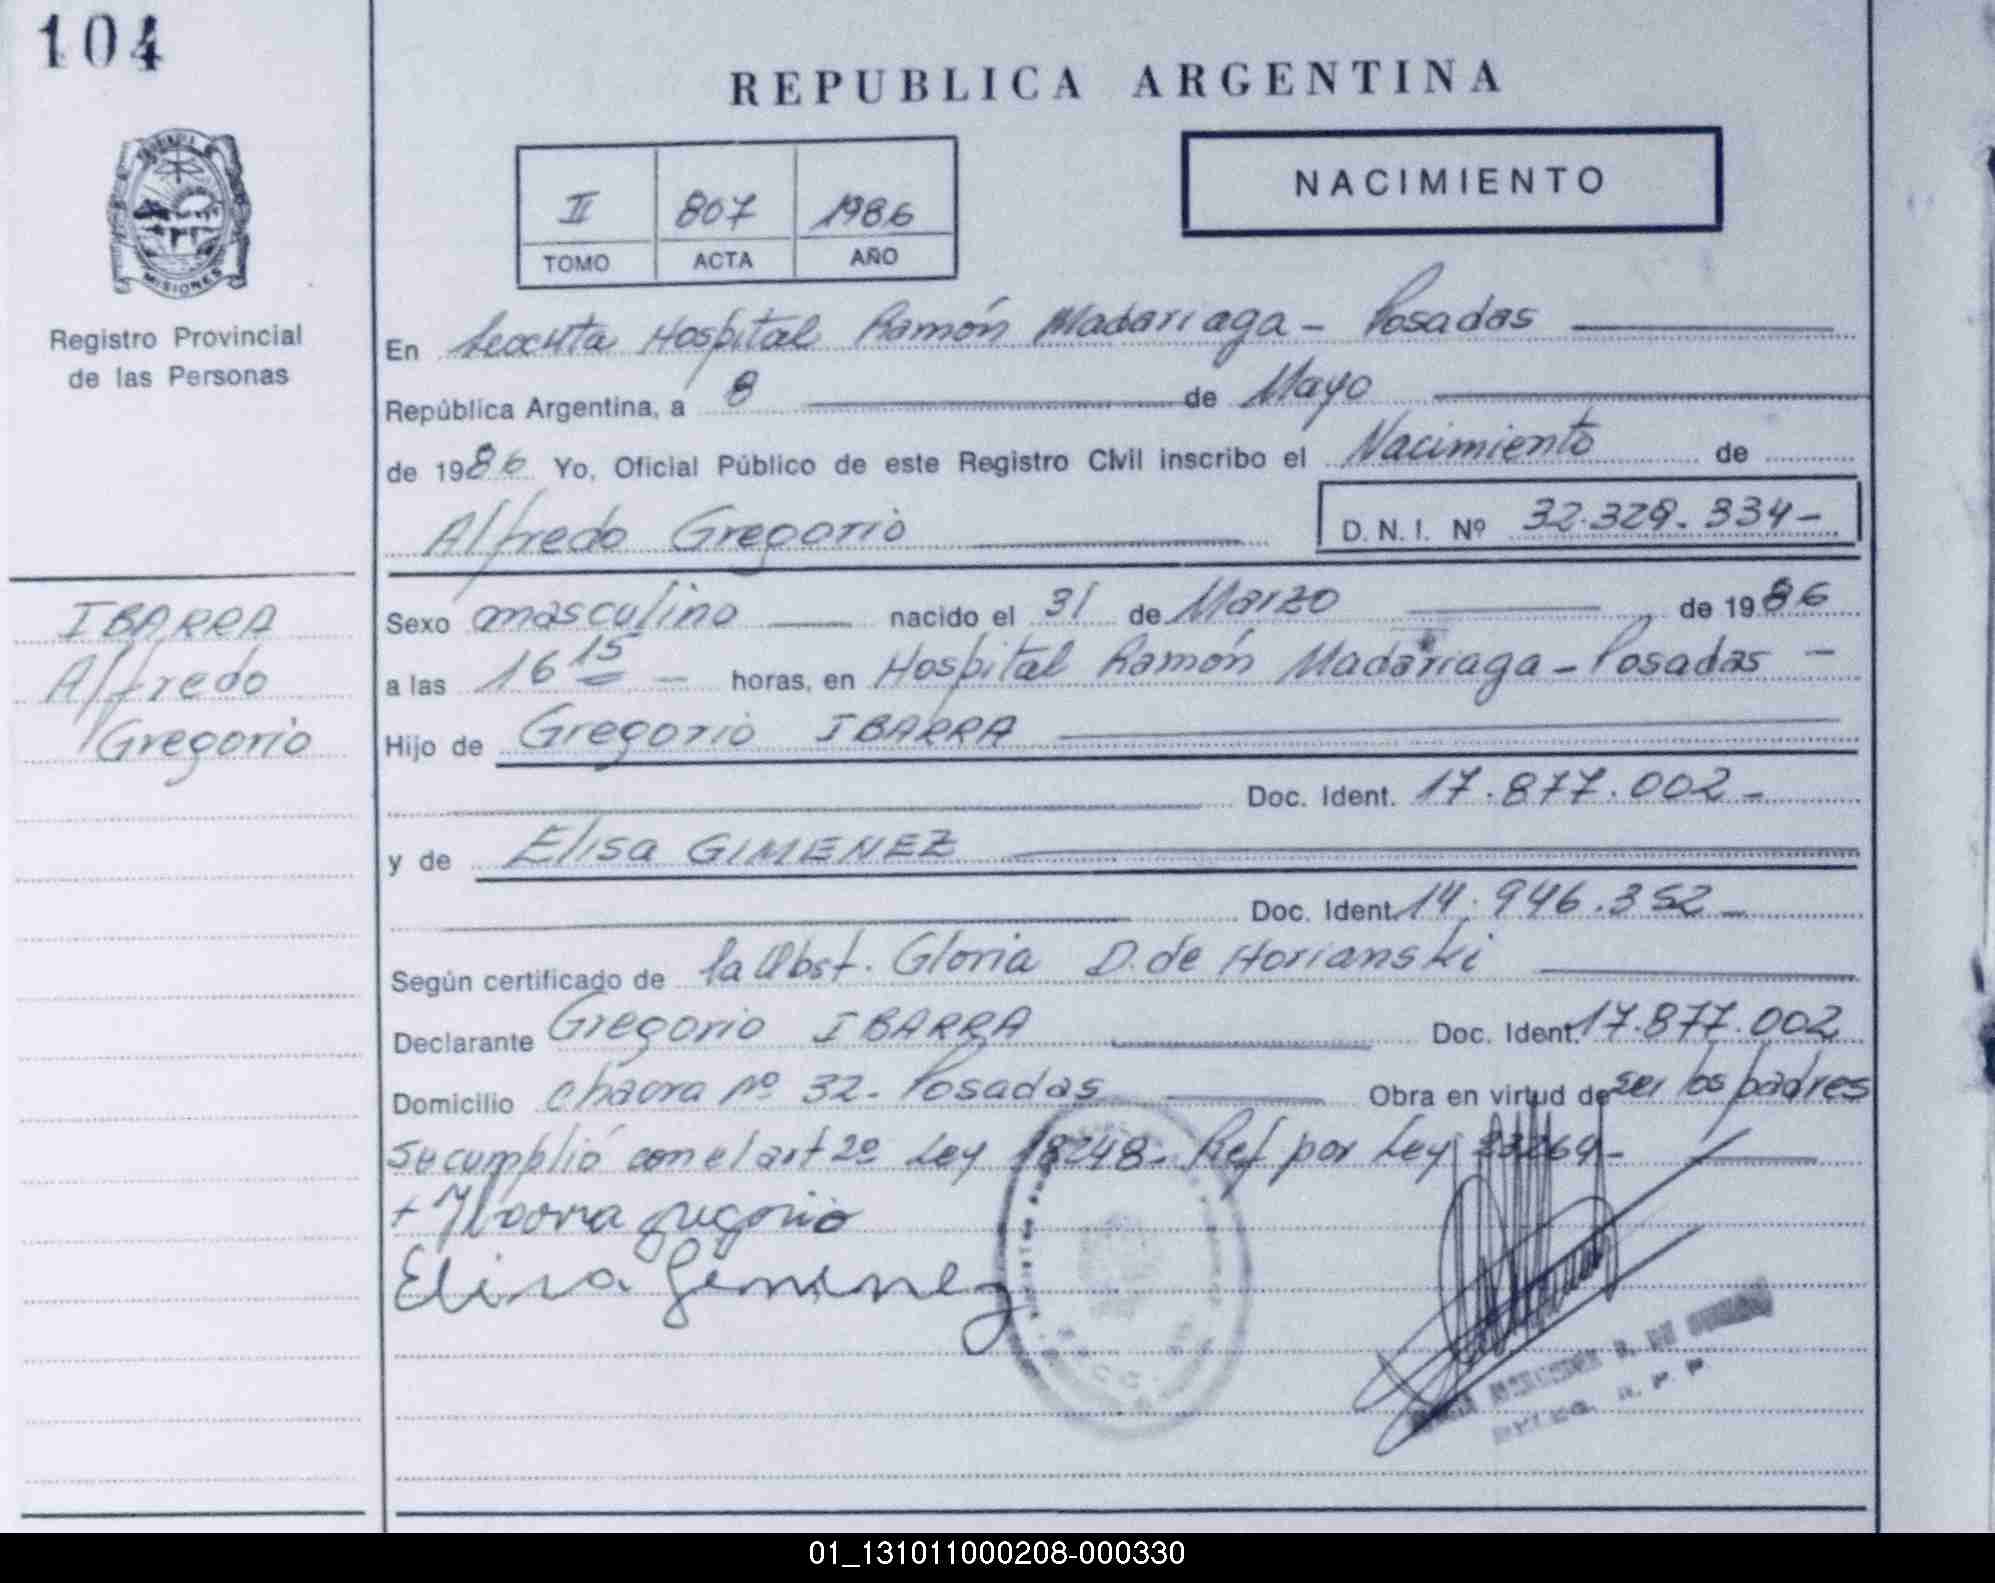 104
REPUBLICA ARGENTINA
II 807 1986
TOMO ACTA AÑO
NACIMIENTO
MISIONES
Registro Provincial
de las Personas
En Hospital Ramón Madariaga - Posadas
República Argentina, a 8 de Mayo
de 1986 Yo, Oficial Público de este Registro Civil inscribo el Nacimiento de
Alfredo Gregorio D. N. I. Nº 32.329.334-
IBARRA
Alfredo
Gregorio
Sexo masculino nacido el 31 de Marzo de 1986
a las 16 15 - horas, en Hospital Ramón Madariaga - Posadas -
Hijo de Gregorio IBARRA
Doc. Ident. 17.877.002-
y de Elisa GIMENEZ
Doc. Ident. 14.946.352-
Según certificado de la Obst. Gloria D. de Horianski
Declarante Gregorio IBARRA Doc. Ident. 17.877.002
Domicilio chacra Nº 32- Posadas Obra en virtud de ser los padres
Se cumplió con el art 2º Ley 18248- Ref por Ley 23264-
+ Ybarra gregorio
Elisa Gimenez
01_131011000208-000330